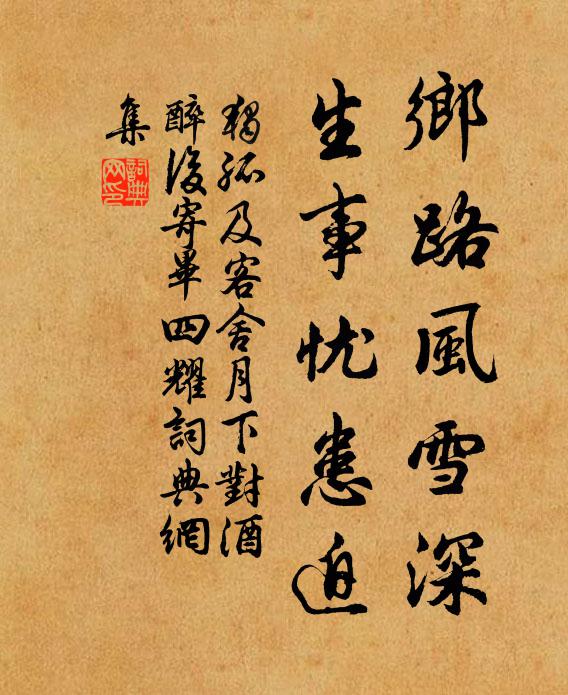 鄉路風雪深
生事忧患迫
獨孤及客舍月下對酒
醉後寄畢四耀詞典網
集
詞典
网印